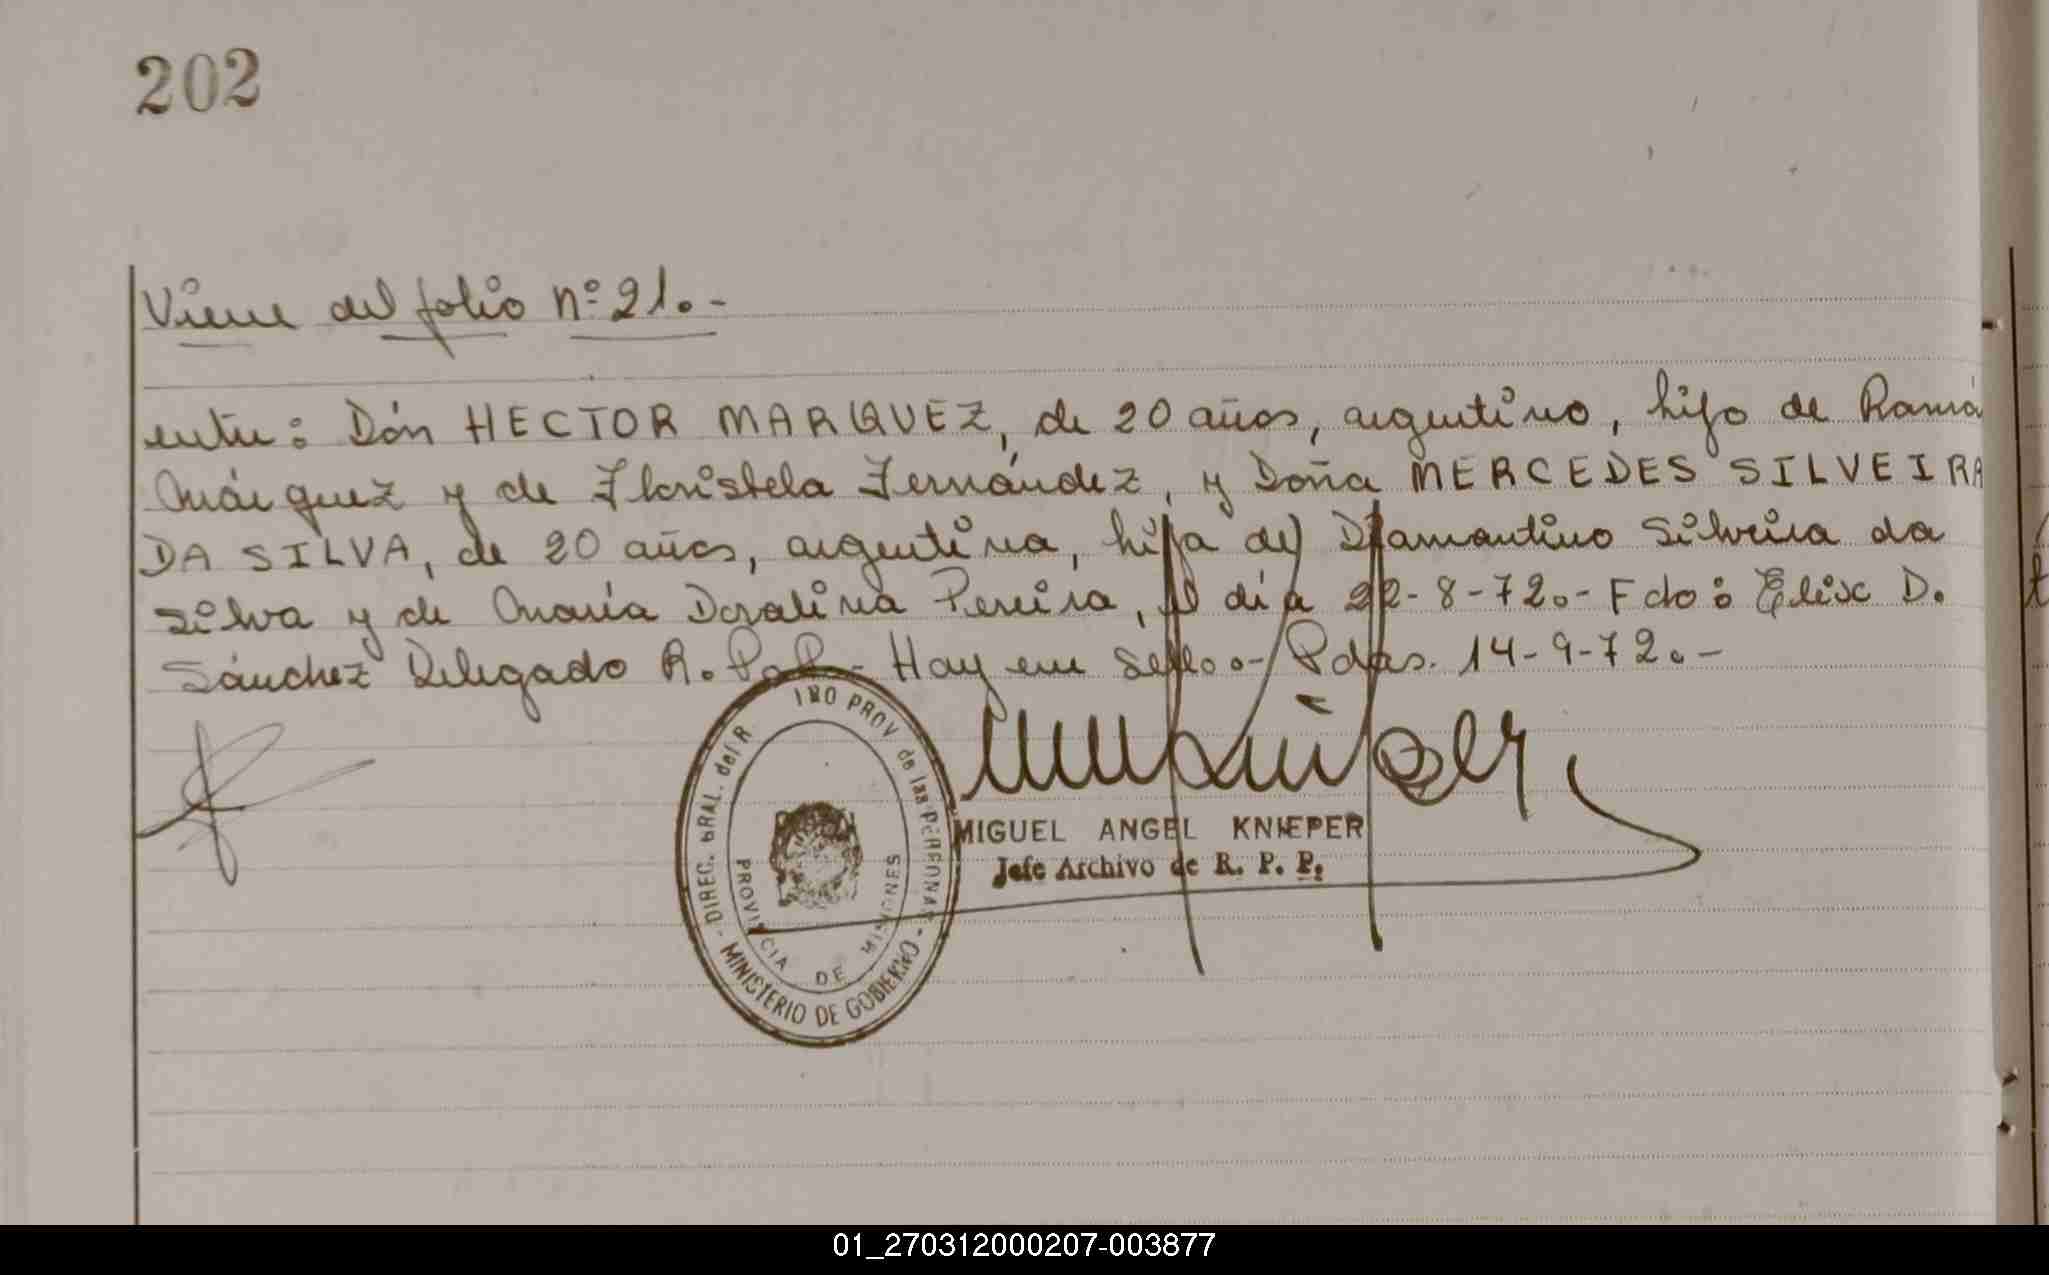 202
Viene del folio nº 21.-
entre: Dón HECTOR MARQUEZ, de 20 años, argentino, hijo de Ramó
Márquez y de Floristela Fernández, y Doña MERCEDES SILVEIRA
DA SILVA, de 20 años, argentina, hija de Diamantino Silveira da
Silva y de María Doralina Pereira, el día 22-8-72.- Fdo: Elix D.
Sánchez Delegado R.P.P.- Hay un sello.- Pdas. 14-9-72.-
DIREC. GRAL. del R INO PROV de las PERSONAS
- MINISTERIO DE GOBIERNO -
PROVINCIA DE MISIONES
MIGUEL ANGEL KNIEPER
Jefe Archivo de R. P. P.
01_270312000207-003877